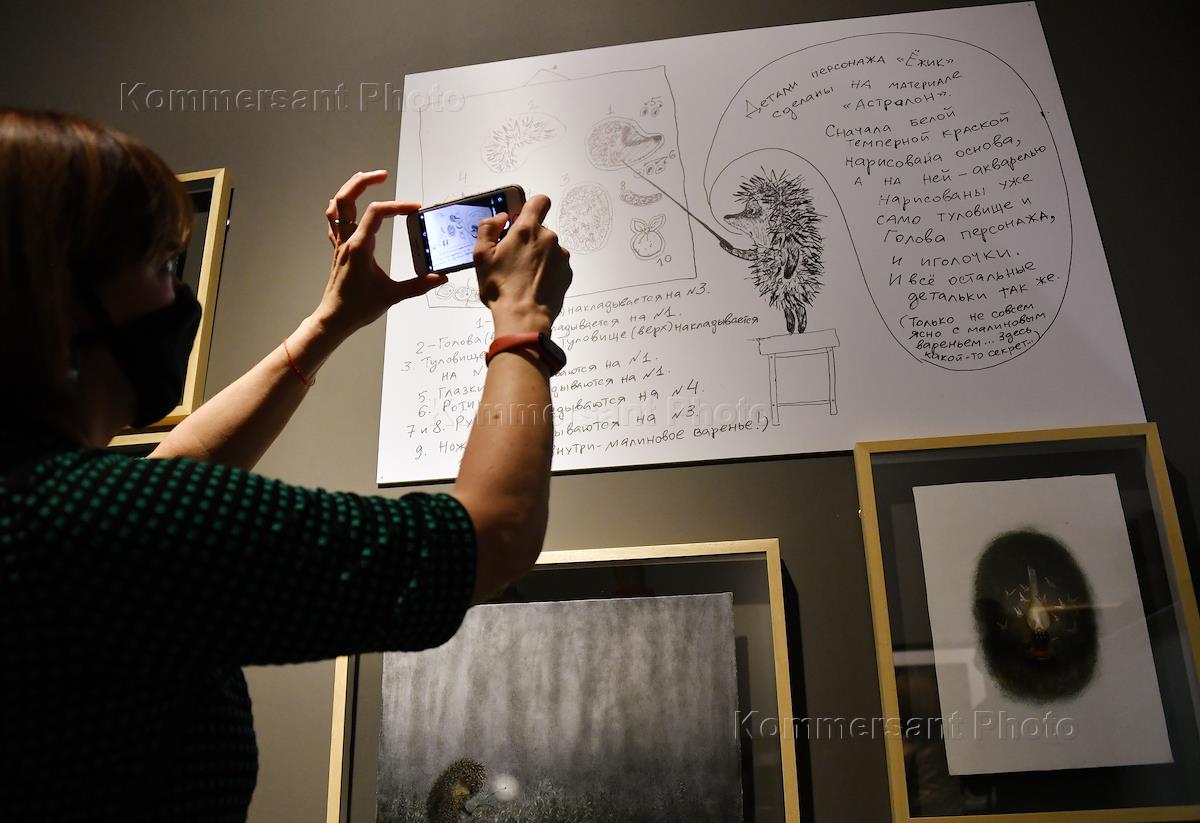 Kommersant Photo
2
1
5
6
3
4
8
10
Детали персонажа «Ёжик»
сделаны на материале
«Астралон».
Сначала белой
темперной краской
нарисована основа,
а на ней – акварелью
нарисованы уже
само туловище и
голова персонажа,
и иголочки.
И всё остальные
детальки так же.
(Только не совсем
ясно с малиновым
вареньем... Здесь
какой-то секрет...)
1- накладывается на №3.
2 – Голова на №1.
3. Туловище Туловище (верх) накладывается
на на №1.
5. Глазки на №1.
6. Роти на №4.
7 и 8. Ру на №3.
9. Нож внутри - малиновое варенье!)
Kommersant Photo
Kommersant Photo